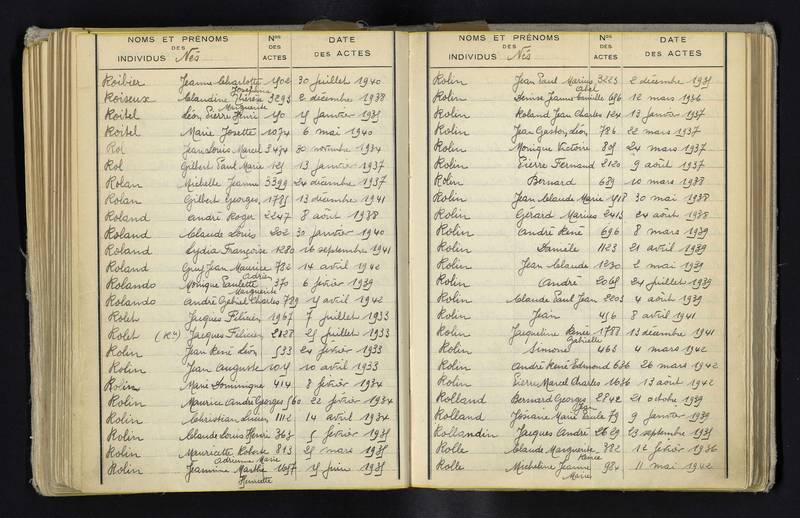 NOMS ET PRÉNOMS
DES
INDIVIDUS Nés
Nos
DES
ACTES
DATE
DES ACTES
Roibier Jeanne Charlotte 902 30 juillet 1940
Joséphine
Roiseux Claudine Thérèse 3293 2 décembre 1938
Marguerite
Roitel Léon Pierre Henri 90 15 janvier 1935
Roitel Marie Josette 1074 6 mai 1940
Rol Jean Louis Marcel 3474 30 novembre 1934
Rol Gilbert Paul Marie 125 13 janvier 1937
Rolan Michelle Jeanne 3399 24 décembre 1937
Rolan Gilbert Georges 1785 13 décembre 1941
Roland André Roger 2247 8 août 1938
Roland Claude Louis 202 30 janvier 1940
Roland Lydia Françoise 1280 16 septembre 1941
Roland Guy Jean Maurice 732 14 avril 1942
Adrien
Rolando Monique Paulette 370 6 février 1939
Marguerite
Rolando André Gabriel Charles 739 15 avril 1942
Rolet Jacques Félicien 1967 7 juillet 1933
Rolet (Ron) Jacques Félicien 2128 25 juillet 1933
Rolin Jean René Léon 533 24 février 1933
Rolin Jean Auguste 1045 10 avril 1933
Rolin Marie Dominique 414 8 février 1934
Rolin Maurice André Georges 560 22 février 1934
Rolin Christian Lucien 1112 14 avril 1934
Rolin Claude Louis Henri 363 5 février 1935
Rolin Mauricette Roberte 813 25 mars 1935
Adrienne Marie
Rolin Jeannine Marthe 1657 15 juin 1935
Henriette
NOMS ET PRÉNOMS
DES
INDIVIDUS Nés
Nos
DES
ACTES
DATE
DES ACTES
Rolin Jean Paul Marius 3223 2 décembre 1935
Abel
Rolin Denise Jeanne Camille 616 12 mars 1936
Rolin Roland Jean Charles 124 13 janvier 1937
Rolin Jean Gaston Léon 786 22 mars 1937
Rolin Monique Victoire 805 24 mars 1937
Rolin Pierre Fernand 2120 9 août 1937
Rolin Bernard 689 10 mars 1938
Rolin Jean Claude Marie 1518 30 mai 1938
Rolin Gérard Marius 2413 24 août 1938
Rolin André René 696 8 mars 1939
Rolin Danièle 1123 21 avril 1939
Rolin Jean Claude 1230 2 mai 1939
Rolin André 2068 24 juillet 1939
Rolin Claude Paul Jean 2203 4 août 1939
Rolin Jean 456 8 avril 1941
Rolin Jacqueline Renée 1788 13 décembre 1941
Gabrielle
Rolin Simone 463 4 mars 1942
Rolin André René Edmond 636 26 mars 1942
Rolin Pierre Marcel Charles 1636 13 août 1942
Rolland Bernard Georges 2842 21 octobre 1939
Jean
Rolland Josiane Marie Paule 79 9 janvier 1939
Rollandin Jacques André 2629 23 septembre 1935
Rolle Claude Marguerite 382 12 février 1936
Renée
Rolle Micheline Jeanne 984 11 mai 1942
Marie